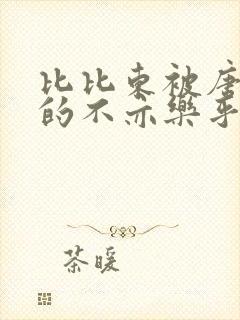 比比东被唐
的不亦乐乎
茶暖